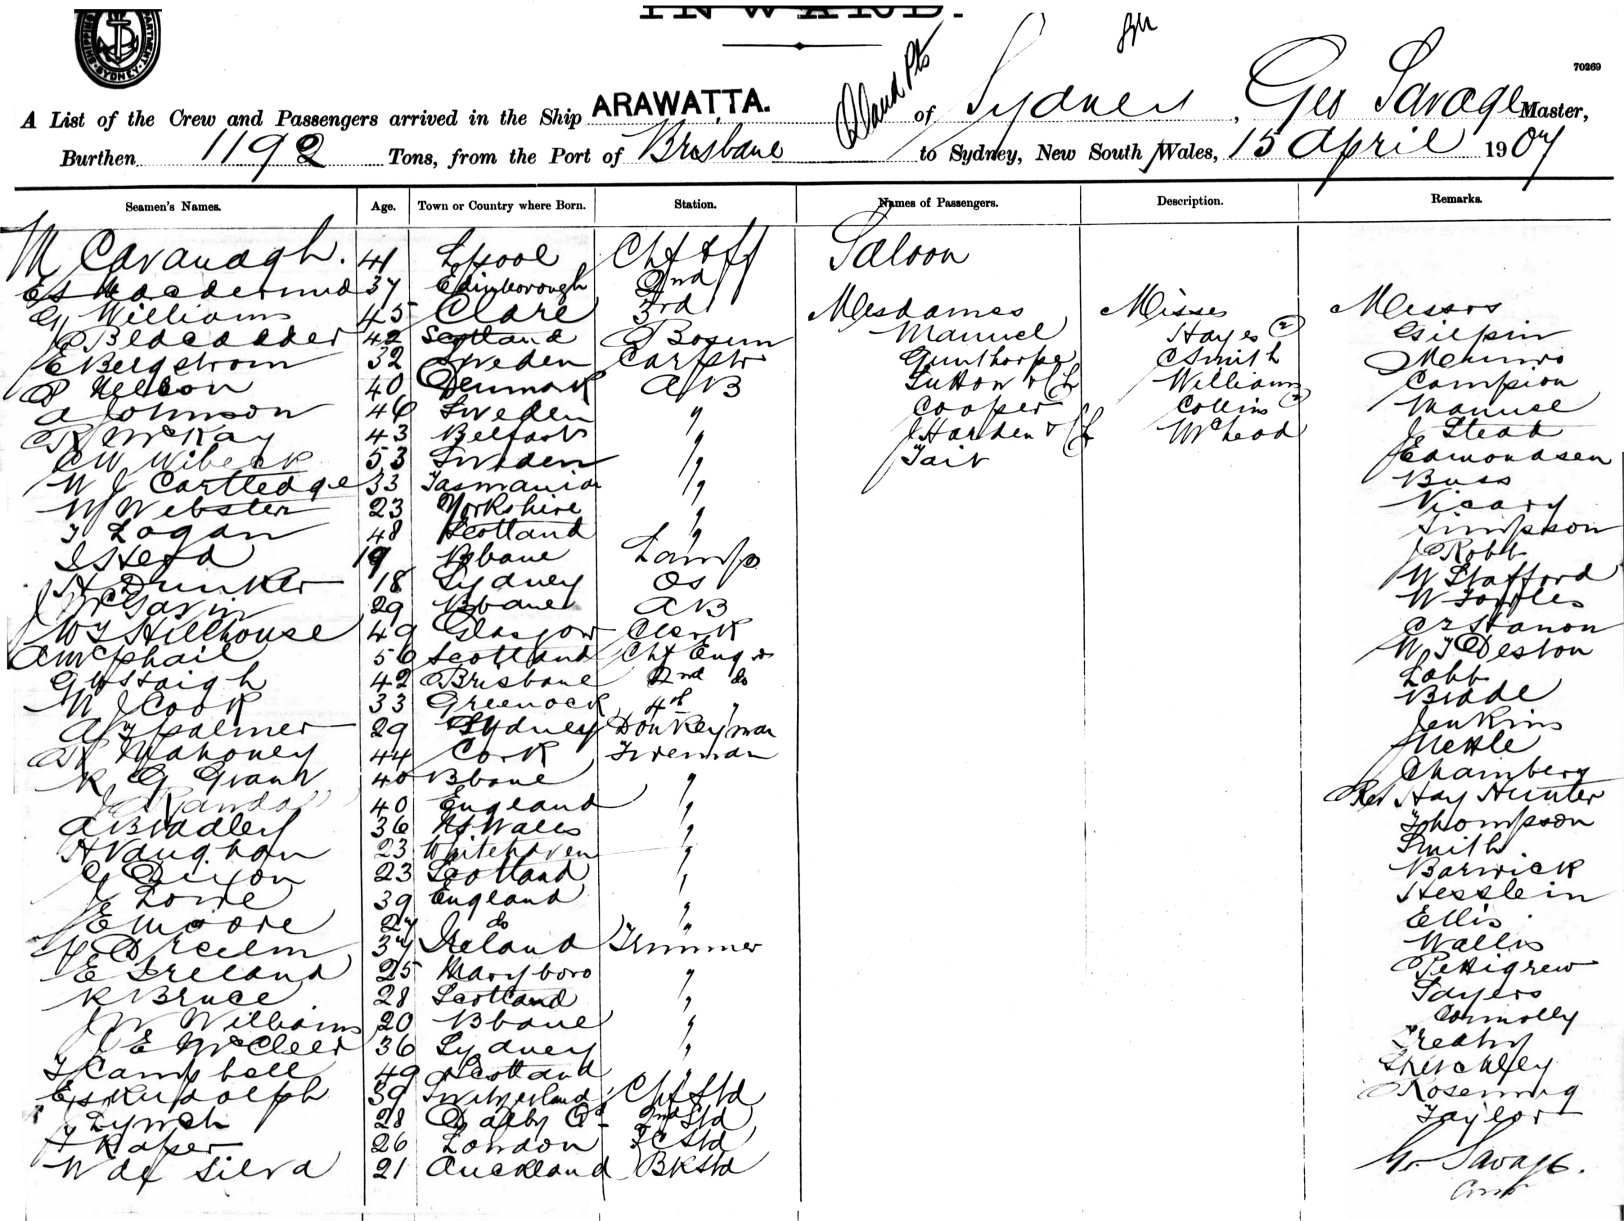 INWARD.
70269
A List of the Crew and Passengers arrived in the Ship ARAWATTA. of Sydney, Geo Savage Master,
Burthen 1192 Tons, from the Port of Brisbane to Sydney, New South Wales, 15 April 1907
Seamen's Names. Age. Town or Country where Born. Station. Names of Passengers. Description. Remarks.
M Cavanagh. 41 L'pool Chf Off Saloon
37 Edinborough 2nd
G Williams 45 Clare 3rd Mesdames Misses Messrs
42 Scotland Bosun Manuel Hayes (2) Gilpin
E Bergstrom 32 Sweden Carptr Gunthorpe C Smith Munro
P Nelson 40 Denmark AB Sutton & Ch Williams Campion
A Johnson 46 Sweden " Cooper Collins 2 Manuel
R McKay 43 Belfast " J Harden & Ch McLeod J Stead
C W Wibeck 53 Sweden " Tait Edmondsen
W J Cartledge 33 Tasmania " Buss
W Webster 23 Yorkshire " Vicary
T Logan 48 Scotland " Simpson
J Head 19 Bbane Lamps J Robb
H Drunker 18 Sydney OS W Stafford
J McGavin 29 Bbane AB W Toffles
W T Hillhouse 49 Glasgow Clerk Hanon
A McPhail 56 Scotland Chf Engr W T Deston
G W Haigh 42 Brisbane 2nd do Lobb
W J Cook 33 Greenock 4th " Bidde
A J Palmer 29 Sydney Donkeyman Jenkins
D Mahoney 44 Cork Fireman Nettle
R G Grant 40 Bbane " Chambers
J Rands 40 England " Rev Hay Hunter
A Bradley 36 N S Wales " Thompson
H Vaughan 23 Whitehaven " Smith
G Dixon 23 Scotland " Barwick
J Lowe 39 England " Hesslein
E Moore 27 do " Ellis
37 Ireland Trimmer Wallis
E Ireland 25 Maryboro " Pettigrew
R Bruce 28 Scotland " Sayers
J W Williams 20 Bbane " Connolly
J E McCleer 36 Sydney "
T Campbell 49 Scotland "
E Rudolph 39 Switzerland Chf Std Rosening
J Lynch 28 Dalby Qd 2nd Std Taylor
T Raper 26 London FC Std
W de Silva 21 Auckland BK Std G. Savage.